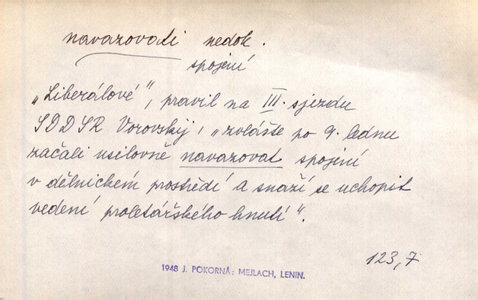 navazovati nedok.
spojení
„Liberálové", pravil na III. sjezdu
SDDSR Vorovskij, „zvláště po 9. lednu
začali usilovně navazovat spojení
v dělnickém prostředí a snaží se uchopit
vedení proletářského hnutí".
123,7
1948 J. POKORNÁ: MEJLACH, LENIN.